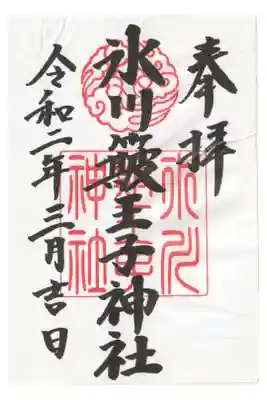 奉拝
氷川簸王子神社
令和二年三月吉日